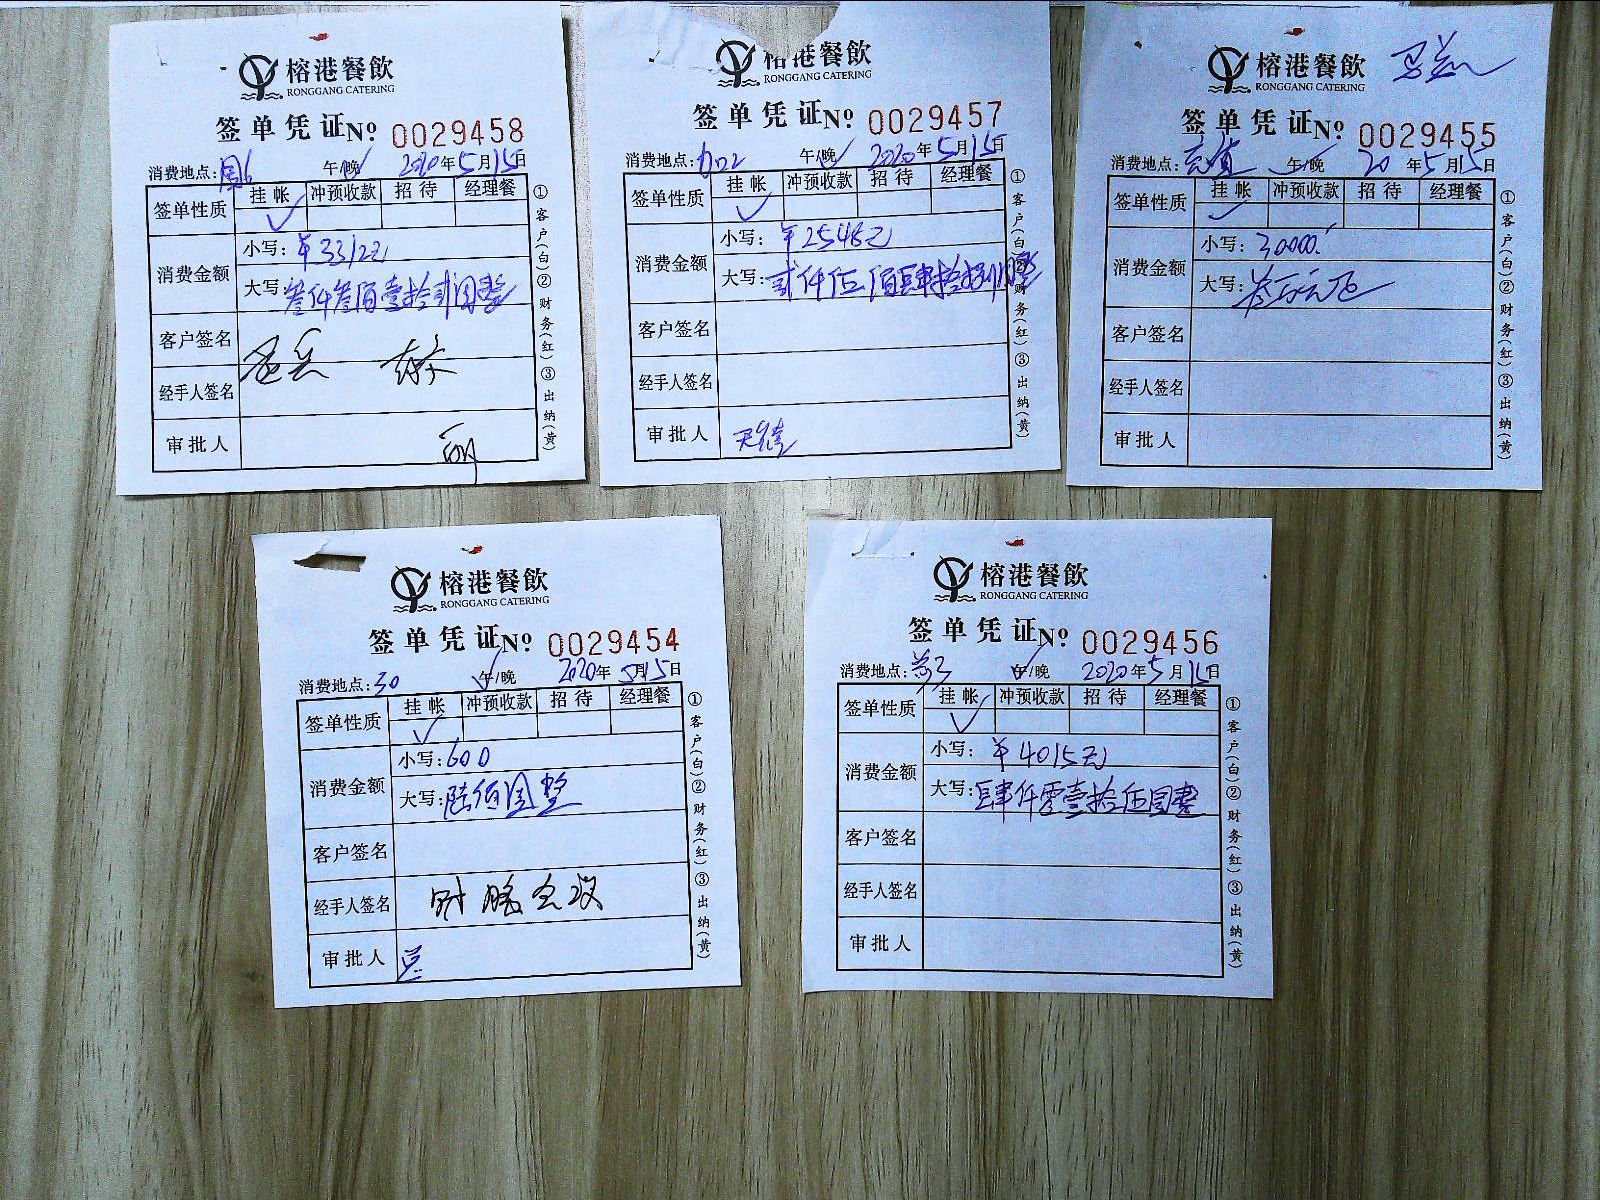 榕港餐飲
RONGGANG CATERING
签单凭证No 0029458
消费地点: 午/晚 2020年5月15日
签单性质 挂帐 冲预收款 招待 经理餐
消费金额 小写: ¥3312元
大写: 叁仟叁佰壹拾贰圆整
客户签名
经手人签名
审批人
①客户(白)②财务(红)③出纳(黄)
榕港餐飲
RONGGANG CATERING
签单凭证No 0029457
消费地点: 午/晚 2020年5月15日
签单性质 挂帐 冲预收款 招待 经理餐
消费金额 小写: ¥2548元
大写: 贰仟伍佰肆拾捌圆整
客户签名
经手人签名
审批人
①客户(白)②财务(红)③出纳(黄)
榕港餐飲
RONGGANG CATERING
签单凭证No 0029455
消费地点: 充值 午/晚 20年5月15日
签单性质 挂帐 冲预收款 招待 经理餐
消费金额 小写: 30000
大写: 叁万元正
客户签名
经手人签名
审批人
①客户(白)②财务(红)③出纳(黄)
榕港餐飲
RONGGANG CATERING
签单凭证No 0029454
消费地点: 30 午/晚 2020年5月15日
签单性质 挂帐 冲预收款 招待 经理餐
消费金额 小写: 600
大写: 陆佰圆整
客户签名
经手人签名
审批人
①客户(白)②财务(红)③出纳(黄)
榕港餐飲
RONGGANG CATERING
签单凭证No 0029456
消费地点: 午/晚 2020年5月15日
签单性质 挂帐 冲预收款 招待 经理餐
消费金额 小写: ¥4015元
大写: 肆仟零壹拾伍圆整
客户签名
经手人签名
审批人
①客户(白)②财务(红)③出纳(黄)